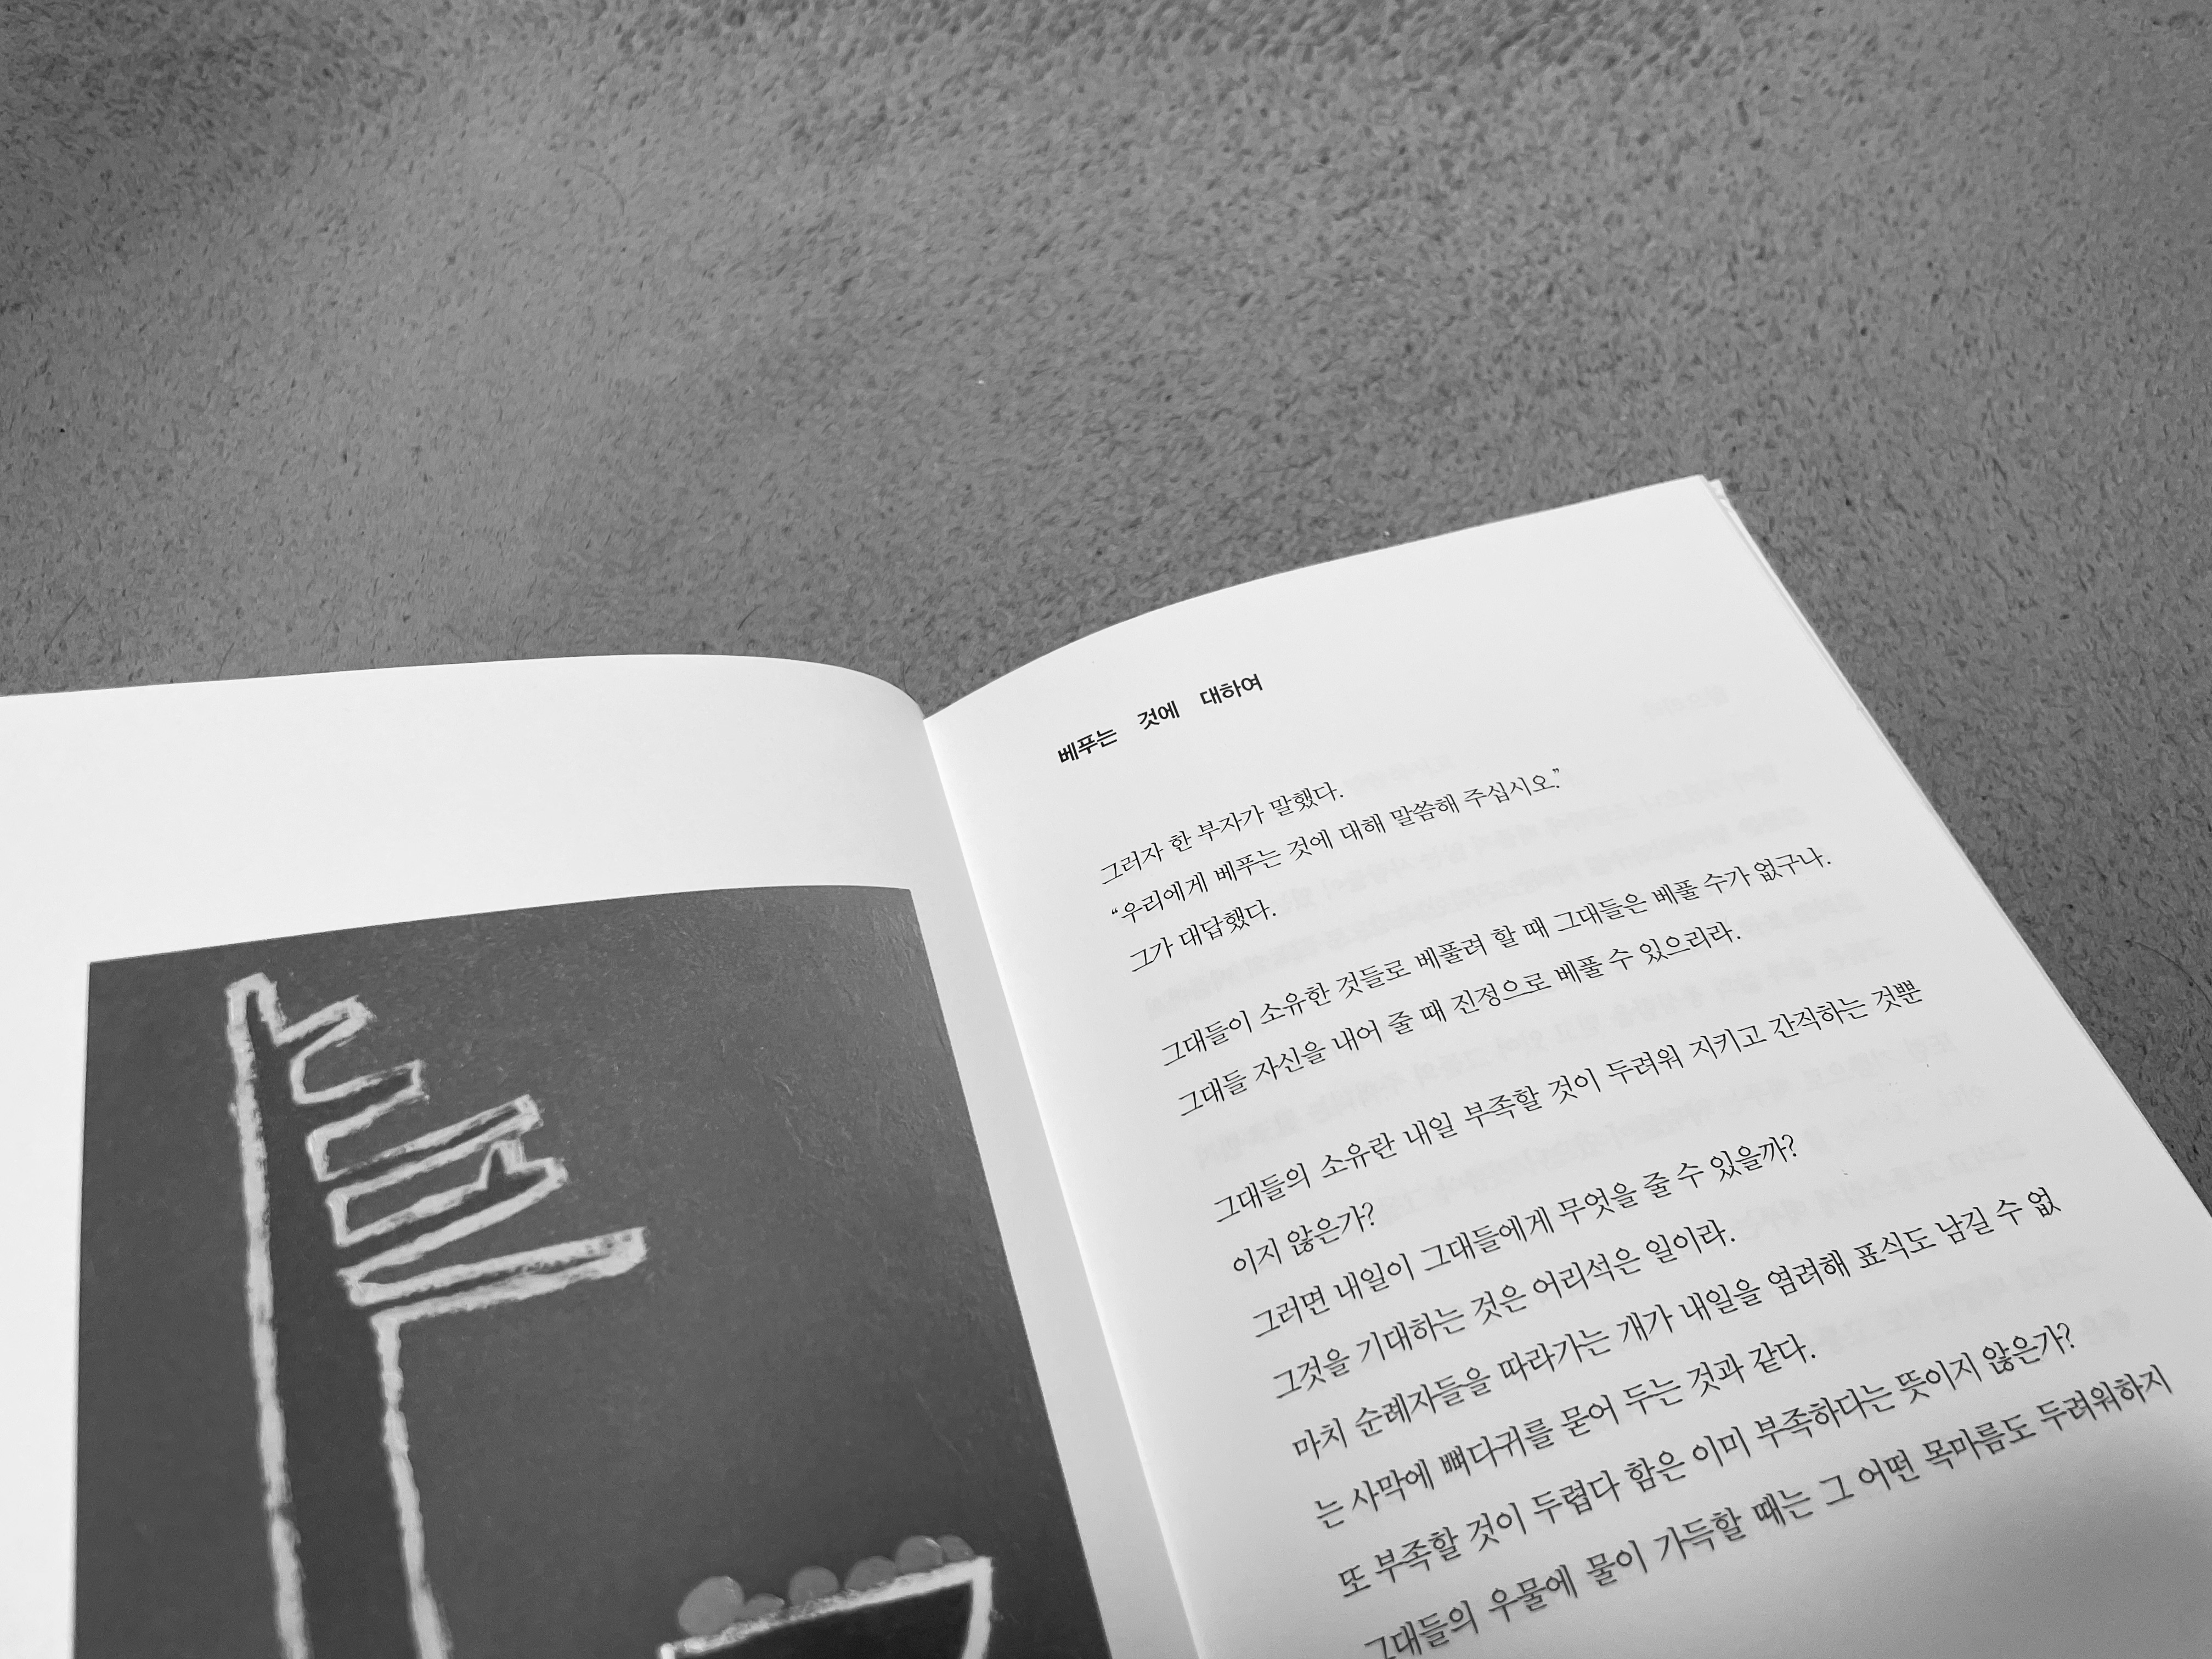 베푸는 것에 대하여
그러자 한 부자가 말했다.
“우리에게 베푸는 것에 대해 말씀해 주십시오.”
그가 대답했다.
그대들이 소유한 것들로 베풀려 할 때 그대들은 베풀 수가 없구나.
그대들 자신을 내어 줄 때 진정으로 베풀 수 있으리라.
그대들의 소유란 내일 부족할 것이 두려워 지키고 간직하는 것뿐
이지 않은가?
그러면 내일이 그대들에게 무엇을 줄 수 있을까?
그것을 기대하는 것은 어리석은 일이라.
마치 순례자들을 따라가는 개가 내일을 염려해 표식도 남길 수 없
는 사막에 뼈다귀를 묻어 두는 것과 같다.
또 부족할 것이 두렵다 함은 이미 부족하다는 뜻이지 않은가?
그대들의 우물에 물이 가득할 때는 그 어떤 목마름도 두려워하지